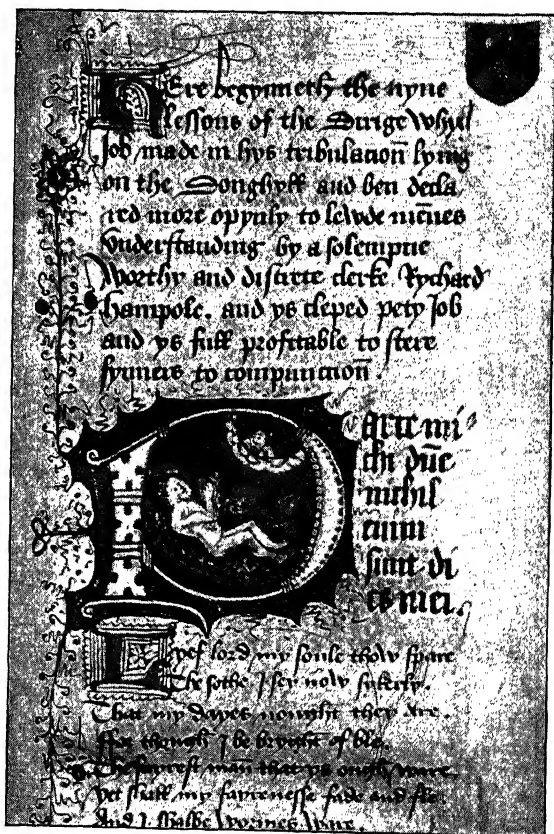 Here begynneth the nyne
lessons of the Dirige whych
Job made in hys tribulacioñ lying
on the Donghyll and ben decla
red more opynly to lewde mẽnes
vnderstanding by a solempne
worthy and discrete clerke Rychard
Hampole. and ys cleped pety Job
and ys full profitable to stere
synners to compunccioñ.
Parce mi
chi dñe
nichil
enim
sunt di
es mei.
Lyef lord my soule thow spare
The sothe I sey now sykerly.
That my dayes nought they are.
ffor though I be bryght of ble.
The fayrest mañ that ys ough ware
yet shall my fayrenesse fade and fle
And I shalbe wormes ware.